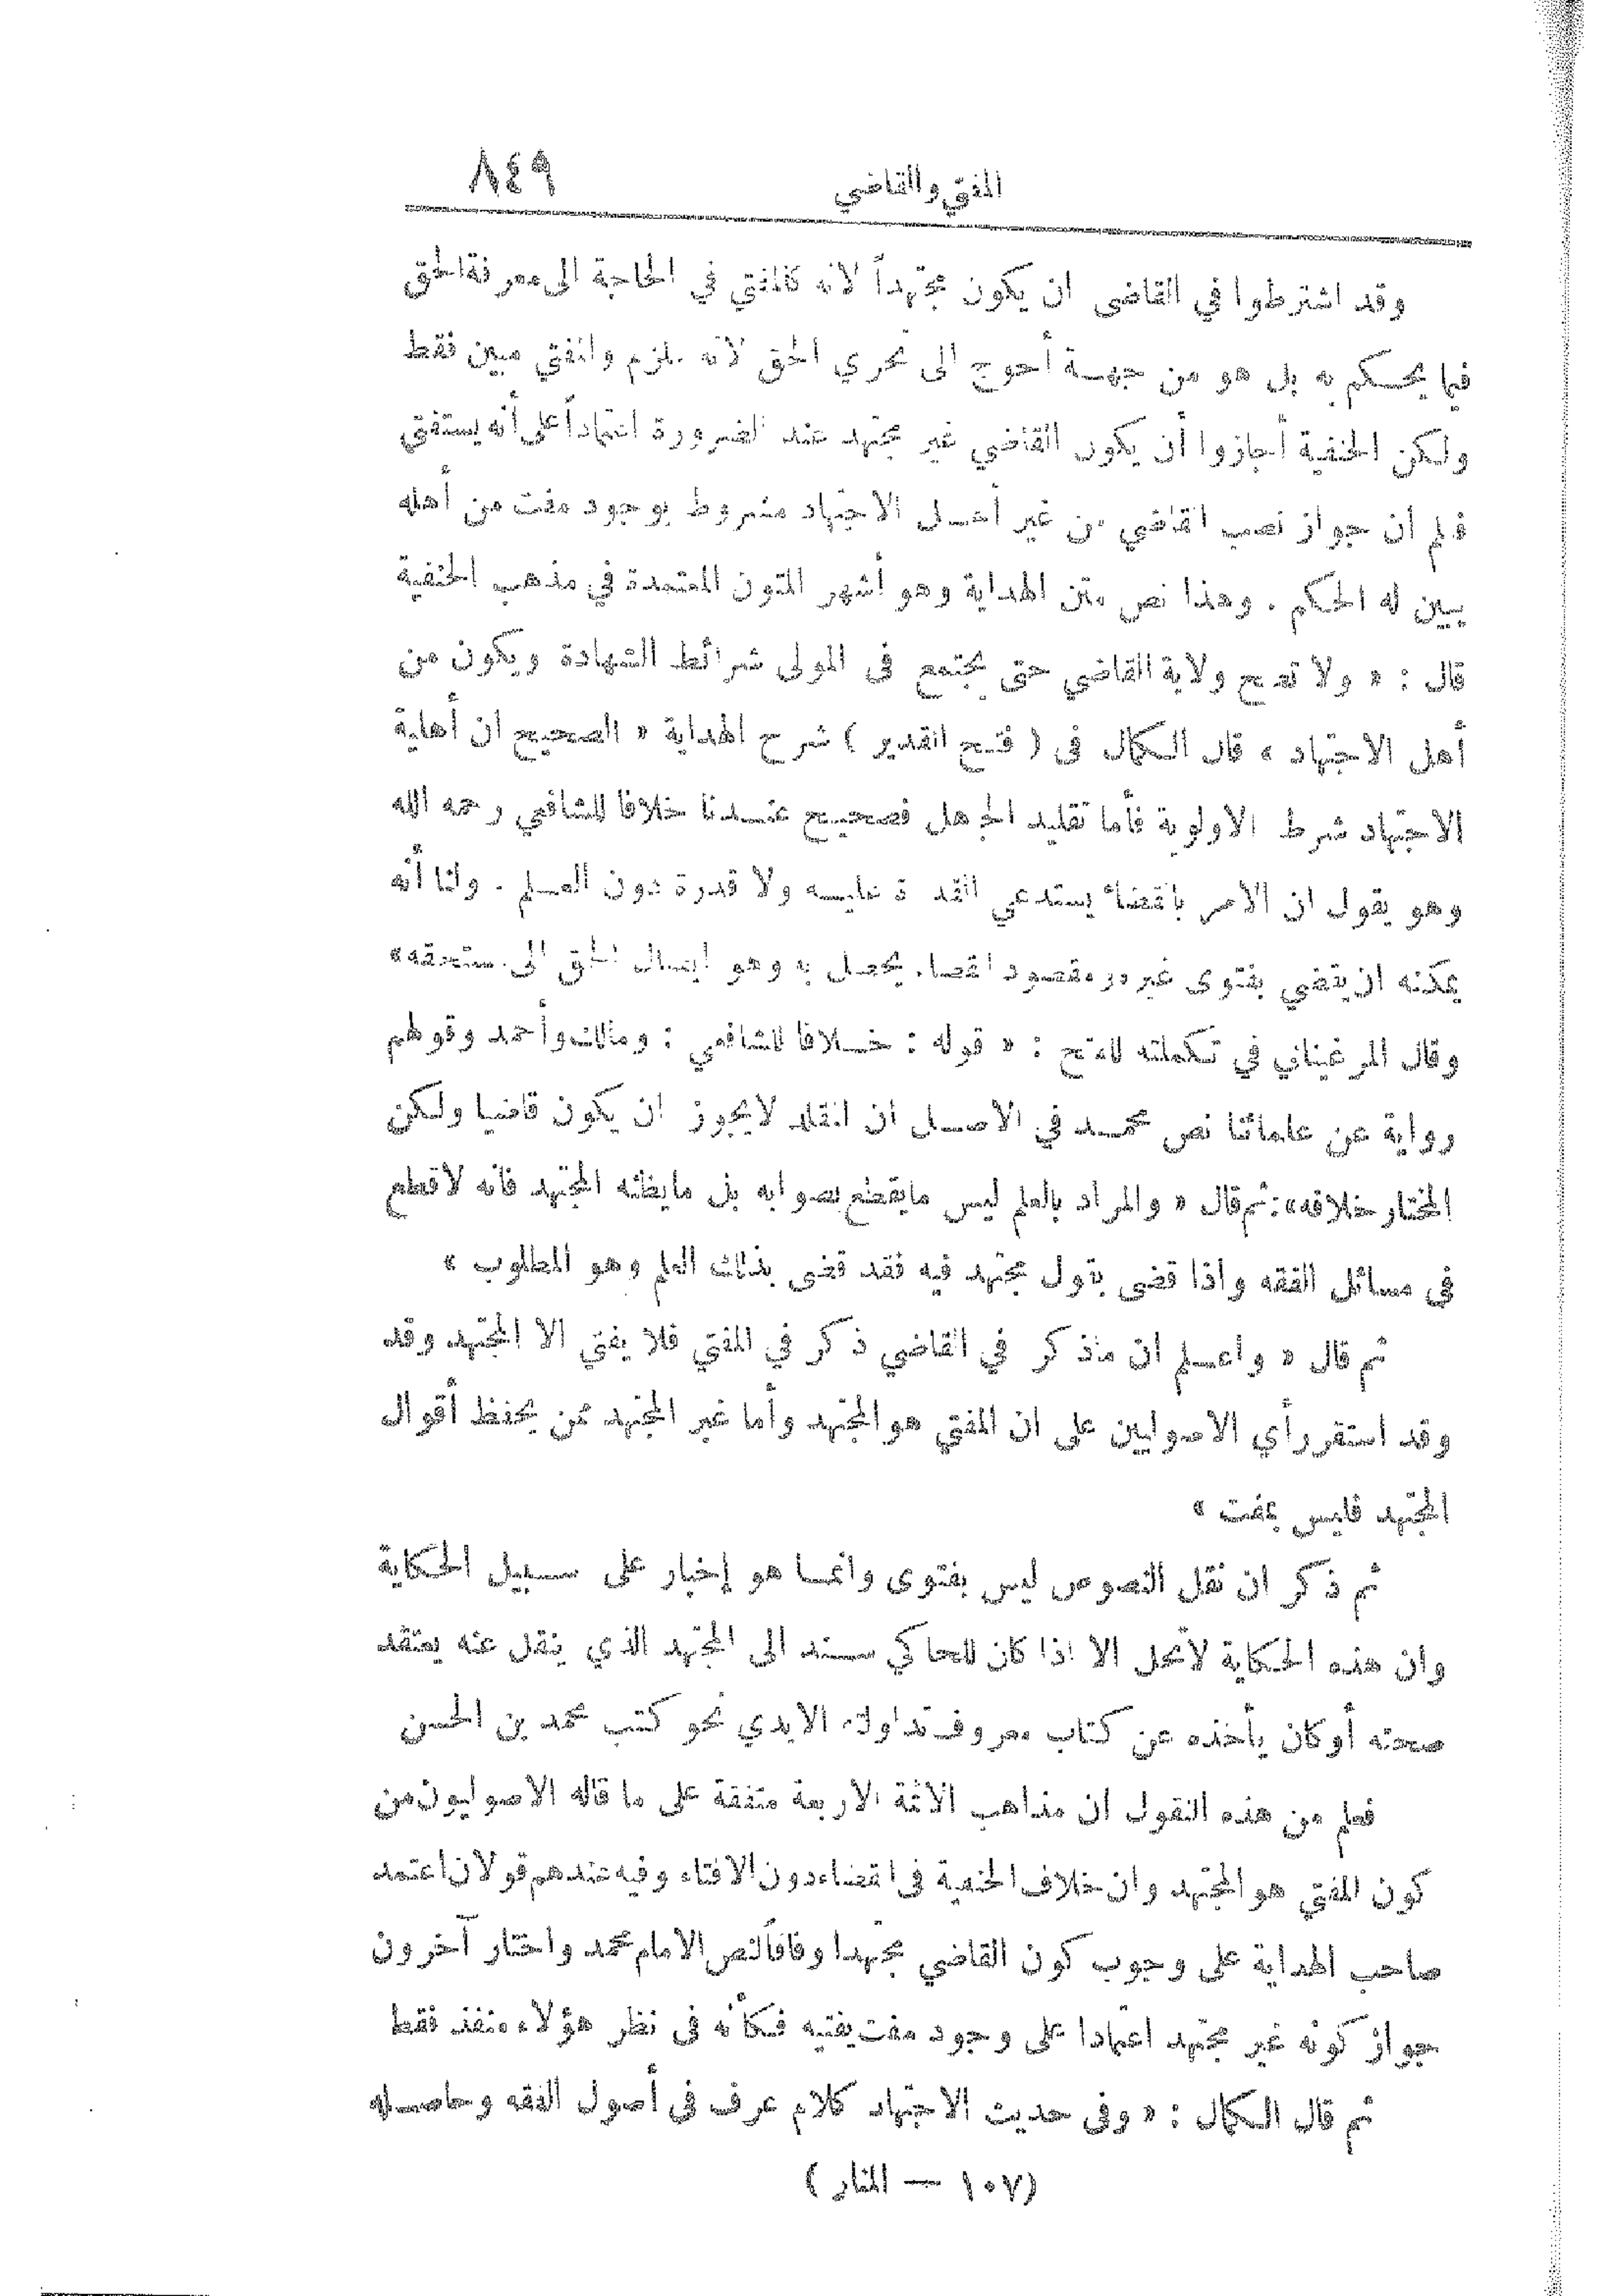 المفتي والقاضي ٨٤٩
وقد اشترطوا في القاضى ان يكون مجتهداً لانه كالمفتي في الحاجة الى معرفة الحق
فيما يحكم به بل هو من جهة أحوج الى تحري الحق لانه ملزم والمفتي مبين فقط
ولكن الحنفية أجازوا أن يكون القاضي غير مجتهد عند الضرورة اعتماداً على أنه يستفتي
فعلم ان جواز نصب القاضي من غير أهل الاجتهاد مشروط بوجود مفت من أهله
يبين له الحكم . وهذا نص متن الهداية وهو أشهر المتون المعتمدة في مذهب الحنفية
قال : « ولا تصح ولاية القاضي حتى يجتمع فى المولى شرائط الشهادة ويكون من
أهل الاجتهاد » قال الكمال فى ( فتح القدير ) شرح الهداية « الصحيح ان أهلية
الاجتهاد شرط الاولوية فأما تقليد الجاهل فصحيح عندنا خلافا للشافعي رحمه الله
وهو يقول ان الامر بالقضاء يستدعي القدرة عليه ولا قدرة دون العلم . ولنا أنه
يمكنه ان يقضي بفتوى غيره ومقصود القضاء يحصل به وهو ايصال الحق الى مستحقه»
وقال المرغيناني في تكملته للفتح : « قوله : خلافا للشافعي : ومالك وأحمد وقولهم
رواية عن علمائنا نص محمد في الاصل ان المقلد لايجوز ان يكون قاضيا ولكن
المختار خلافه»: ثم قال « والمراد بالعلم ليس مايقطع بصوابه بل مايظنه المجتهد فانه لاقطع
فى مسائل الفقه واذا قضى بقول مجتهد فيه فقد قضى بذلك العلم وهو المطلوب »
ثم قال « واعلم ان ماذكر في القاضي ذكر في المفتي فلا يفتي الا المجتهد وقد
وقد استقر رأي الاصوليين على ان المفتي هو المجتهد وأما غير المجتهد ممن يحفظ أقوال
المجتهد فليس بمفت »
ثم ذكر ان نقل النصوص ليس بفتوى وانما هو إخبار على سبيل الحكاية
وان هذه الحكاية لاتحل الا اذا كان للحاكي سند الى المجتهد الذي ينقل عنه يعتقد
صحته أو كان يأخذه عن كتاب معروف تداولته الايدي نحو كتب محمد بن الحسن
فعلم من هذه النقول ان مذاهب الائمة الاربعة متفقة على ما قاله الاصوليون من
كون المفتي هو المجتهد وان خلاف الحنفية فى القضاء دون الافتاء وفيه عندهم قولان اعتمد
صاحب الهداية على وجوب كون القاضي مجتهدا وفاقاً لنص الامام محمد واختار آخرون
جواز كونه غير مجتهد اعتمادا على وجود مفت يفتيه فكأنه فى نظر هؤلاء منفذ فقط
ثم قال الكمال : « وفى حديث الاجتهاد كلام عرف فى أصول الفقه وحاصله
(١٠٧ — المنار )